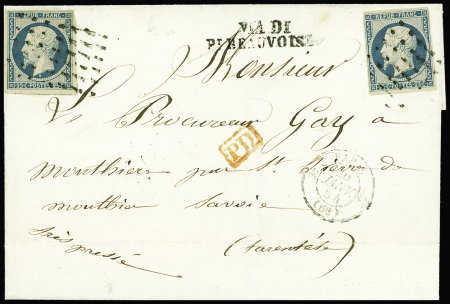 REPUB. FRANC.
25 C. POSTES 25 C.
VIA DI
Pt BEAUVOISIN
REPUB. FRANC.
25 C. POSTES 25 C.
Monsieur
Le Procureur Gay à
PD
Monthier par St Pierre de
monthier Savoie
(60)
très pressé
(tarentèse)